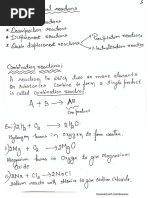 5
reactions
* Decomposition reactions
* Displacement reactions
* Double displacement reactions
Precipitation reactions
Neutralisation reactions
Combination reactions:
A reaction in which two or more elements
or Substances combine to form a single product
is called combination reaction.
A + B → AB
One product
Ex:- 1) 2H2 + O2 → 2H2O
Hydrogen burns in oxygen to form water.
2) 2Mg + O2 → 2MgO
Magnesium burns in Oxygen to give Magnesium
Oxide
3) 2Na + Cl2 → 2NaCl
Sodium reacts with chlorine to give Sodium Chloride.